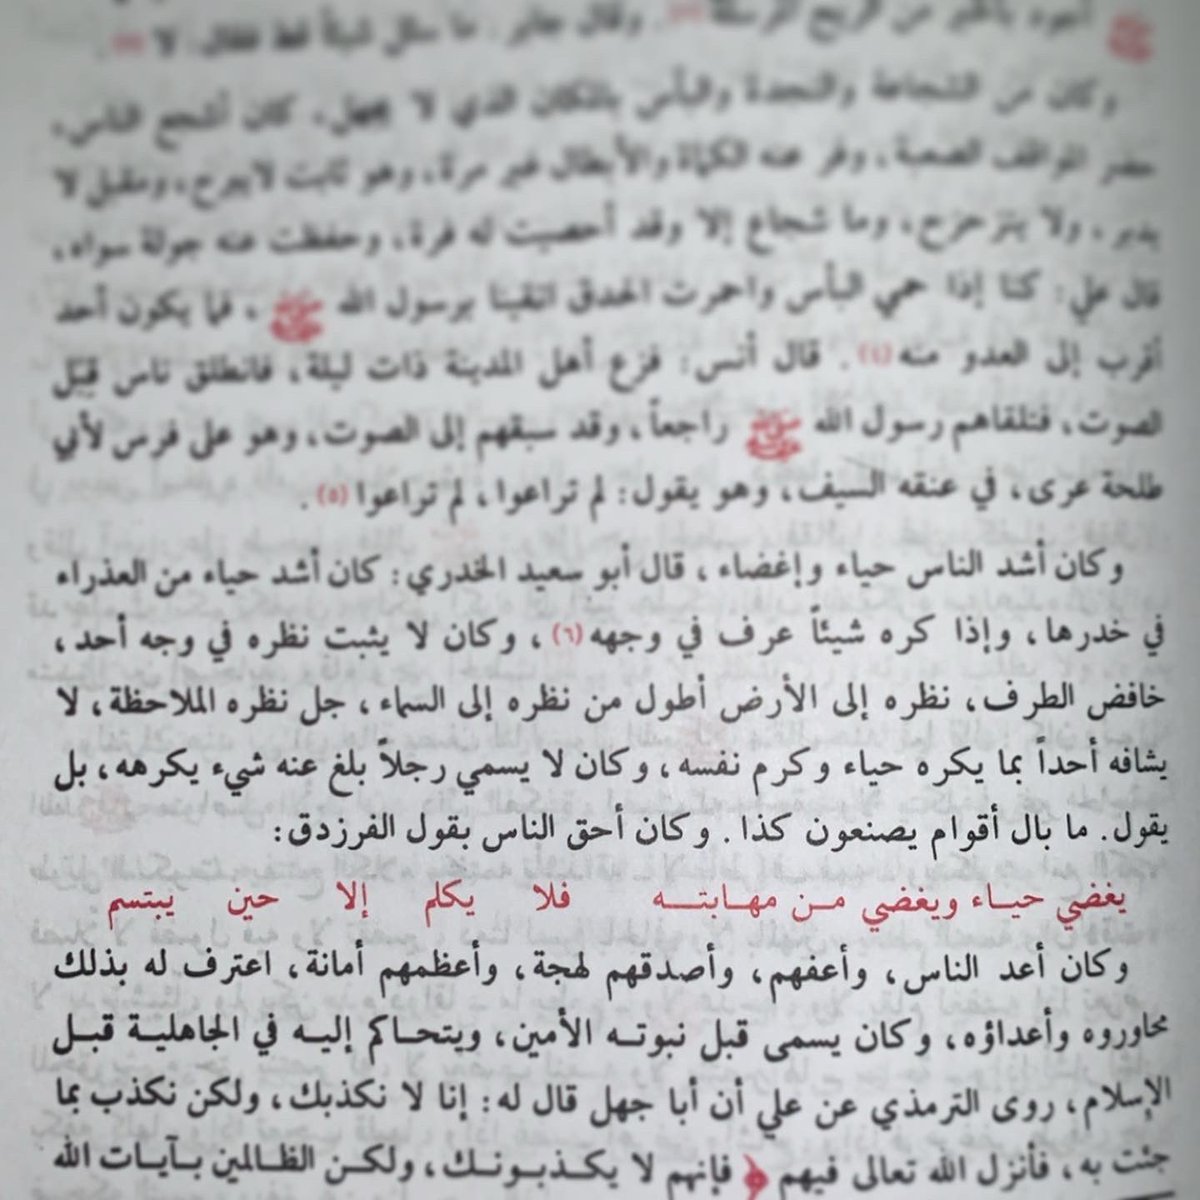 ﷺ أجود بالخير من الريح المرسلة. وقال جابر: ما سئل شيئاً قط فقال: لا
وكان من الشجاعة والنجدة والبأس بالمكان الذي لا يجهل، كان أشجع الناس،
حضر المواقف الصعبة، وفر عنه الكماة والأبطال غير مرة، وهو ثابت لا يبرح، ومقبل لا
يدبر، ولا يتزحزح، وما شجاع إلا وقد أحصيت له فرة، وحفظت عنه جولة سواه،
قال علي: كنا إذا حمي البأس واحمرت الحدق اتقينا برسول الله ﷺ، فما يكون أحد
أقرب إلى العدو منه(٤). قال أنس: فزع أهل المدينة ذات ليلة، فانطلق ناس قِبَل
الصوت، فتلقاهم رسول الله ﷺ راجعاً، وقد سبقهم إلى الصوت، وهو على فرس لأبي
طلحة عرى، في عنقه السيف، وهو يقول: لم تراعوا، لم تراعوا(٥).
وكان أشد الناس حياء وإغضاء، قال أبو سعيد الخدري: كان أشد حياء من العذراء
في خدرها، وإذا كره شيئاً عرف في وجهه(٦)، وكان لا يثبت نظره في وجه أحد،
خافض الطرف، نظره إلى الأرض أطول من نظره إلى السماء، جل نظره الملاحظة، لا
يشافه أحداً بما يكره حياء وكرم نفسه، وكان لا يسمي رجلاً بلغ عنه شيء يكرهه، بل
يقول. ما بال أقوام يصنعون كذا. وكان أحق الناس بقول الفرزدق:
يغضي حيـاء ويغضي مـن مهـابتـه فلا يكلم إلا حين يبتسم
وكان أعد الناس، وأعفهم، وأصدقهم لهجة، وأعظمهم أمانة، اعترف له بذلك
محاوروه وأعداؤه، وكان يسمى قبل نبوتـه الأمين، ويتحـاكم إليـه في الجاهليـة قبـل
الإسلام، روى الترمذي عن علي أن أبا جهل قال له: إنا لا نكذبك، ولكن نكذب بما
جئت به، فأنزل الله تعالى فيهم ﴿ فإنهم لا يكـذبـونـك، ولكـن الظـالمين بـآيـات الله